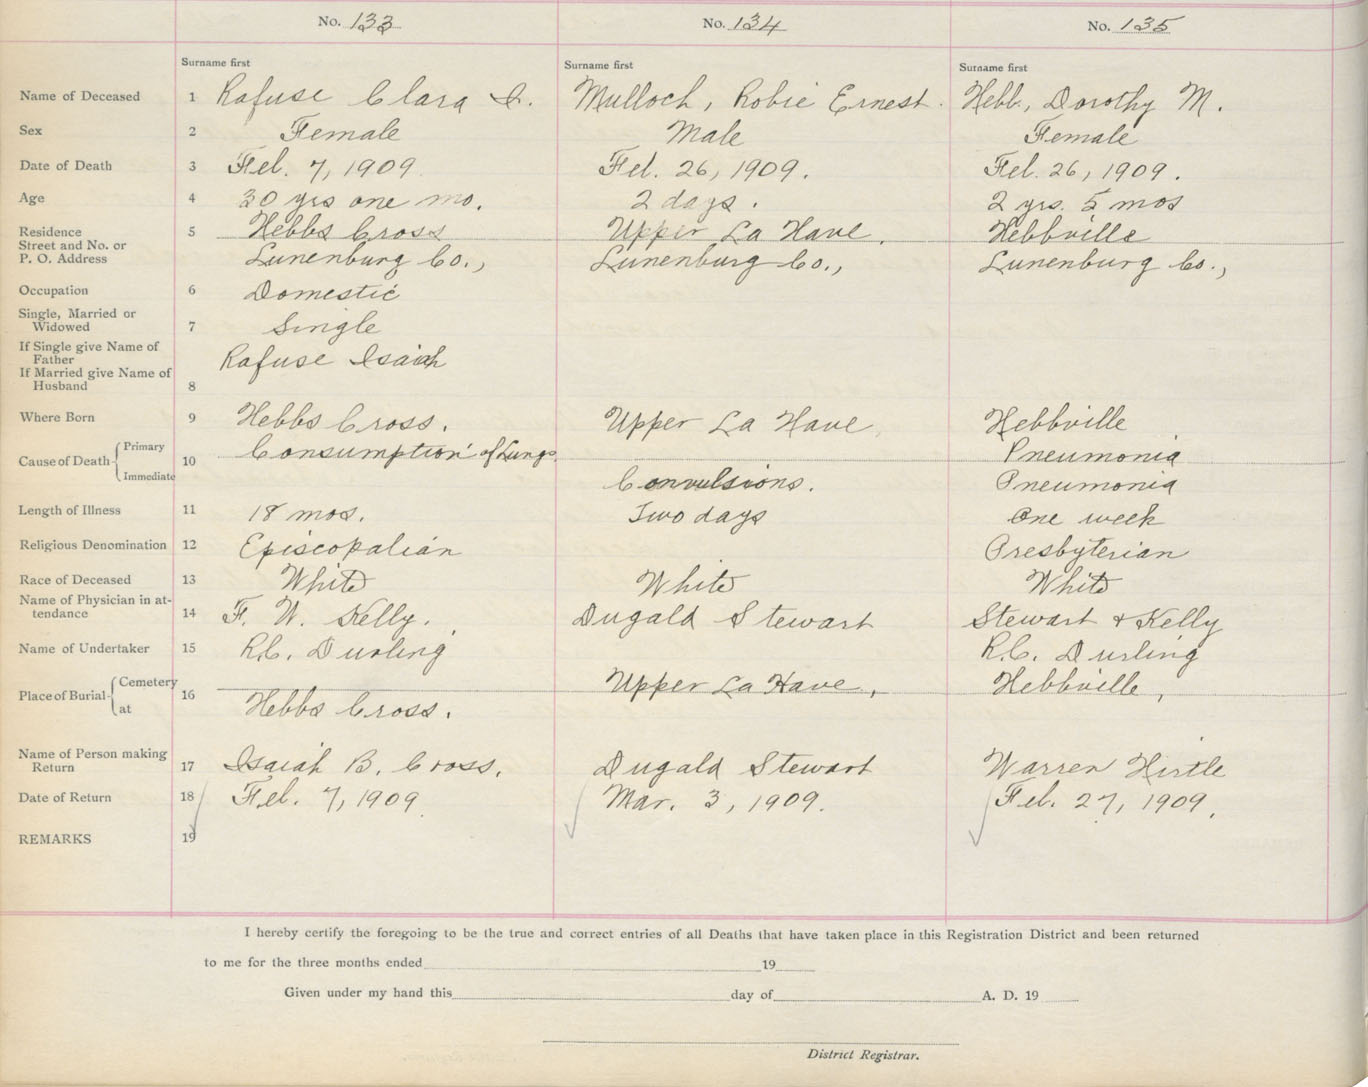 No. 133 No. 134 No. 135
Surname first Surname first Surname first
Name of Deceased 1 Rafuse Clara I. Mulloch, Robie Ernest. Hebb, Dorothy M.
Sex 2 Female Male Female
Date of Death 3 Feb. 7, 1909 Feb. 26, 1909. Feb. 26, 1909.
Age 4 30 yrs one mo. 2 days. 2 yrs. 5 mos
Residence 5 Hebbs Cross Upper La Have. Hebbville
Street and No. or
P. O. Address Lunenburg Co., Lunenburg Co., Lunenburg Co.,
Occupation 6 Domestic
Single, Married or
Widowed 7 Single
If Single give Name of
Father Rafuse Isaiah
If Married give Name of
Husband 8
Where Born 9 Hebbs Cross. Upper La Have. Hebbville
Primary Consumption of Lungs. Pneumonia
Cause of Death 10
Immediate Convulsions. Pneumonia
Length of Illness 11 18 mos. Two days One week
Religious Denomination 12 Episcopalian Presbyterian
Race of Deceased 13 White White White
Name of Physician in at-
tendance 14 F. W. Kelly. Dugald Stewart Stewart & Kelly
Name of Undertaker 15 R.C. Durling R.C. Durling
Cemetery Upper La Have, Hebbville,
Place of Burial 16
at Hebbs Cross.
Name of Person making
Return 17 Isaiah B. Cross. Dugald Stewart Warren Hirtle
Date of Return 18 Feb. 7, 1909 Mar. 3, 1909. Feb. 27, 1909.
REMARKS 19
I hereby certify the foregoing to be the true and correct entries of all Deaths that have taken place in this Registration District and been returned
to me for the three months ended 19
Given under my hand this day of A. D. 19
District Registrar.